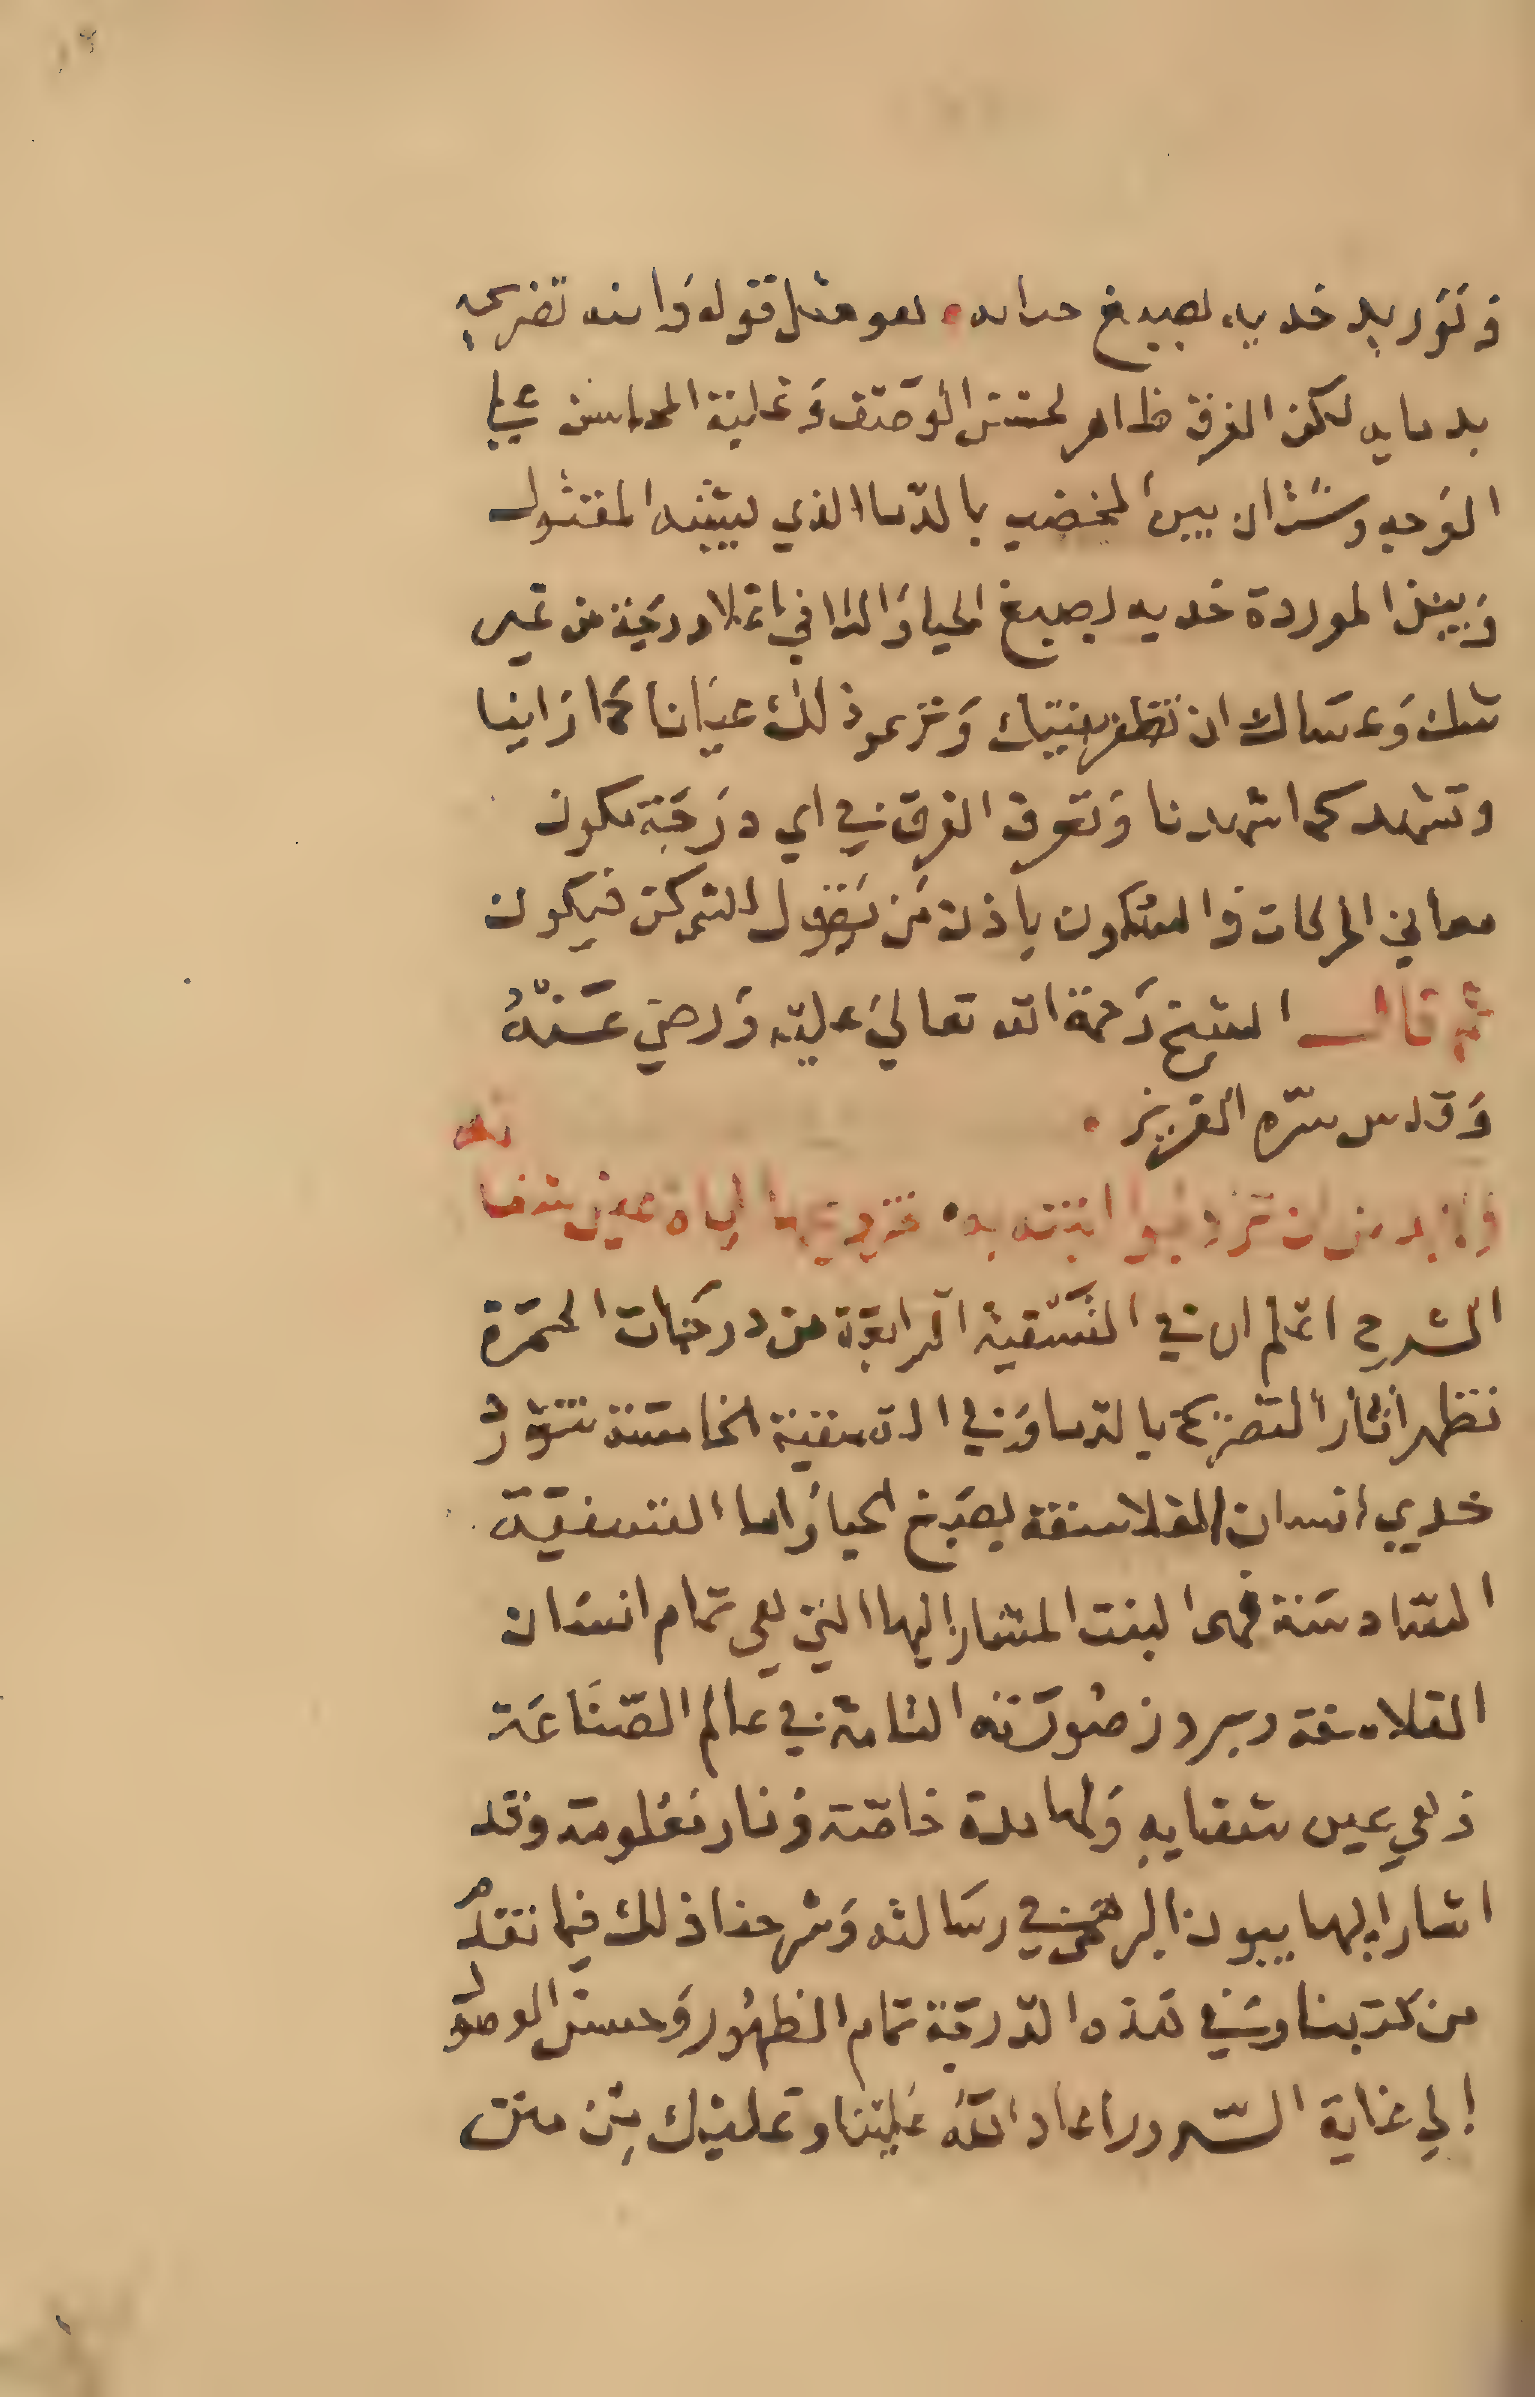 وتوريد خديه بصبغ حيايه هو مثل قوله وانه تضريجه
بدمايه لكن الفرق ظاهر لحسن الوصف وغلبة المحاسن علي
الوجه وشتان بين المخضب بالدما الذي يشبه المقتول
وبين الموردة خديه بصبغ الحيا والثاني اعلا درجة من غير
شك وعساك ان تظفر ببنيتك وترعى ذلك عيانا كما راينا
وتشهد كما شهدنا وتعرف الفرق في اي درجة تكون
معاني الحركات والسكون باذن من يقول للشي كن فيكون
ثم قال الشيخ رحمة الله تعالي عليه ورضي عنه
وقدس سره العزيز
الشرح اعلم ان في التسقية الرابعة من درجات الحمرة
تظهر اثار التضريج بالدما وفي التسقية الخامسة تتورد
خدي انسان الفلاسفة بصبغ الحيا واما التسقية
السادسة فهى البنت المشار اليها التي هي تمام انسان
الفلاسفة وبروز صورته التامة في عالم الصناعة
وهي عين شفايه ولها مدة خاصة ونار معلومة وقد
اشار اليها بيون البرهمي في رسالته وشرحنا ذلك فيما تقدم
من كتبنا وفي هذه الدرجة تمام الظهور وحسن الوصول
الي غاية السرور اعاد الله علينا وعليك من